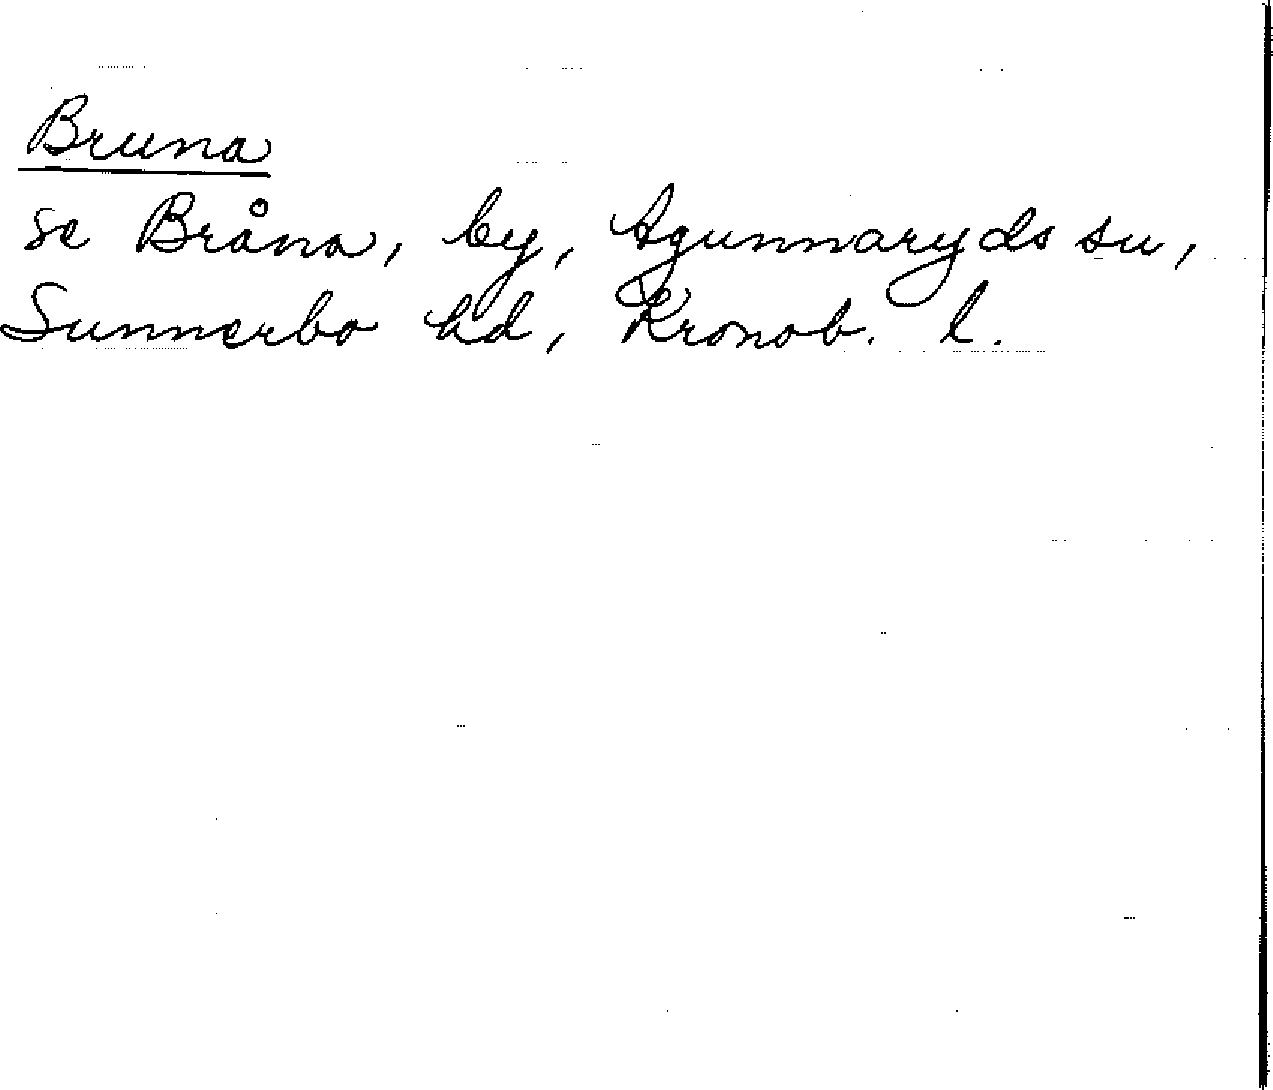 Bruna
se Bråna, by, Agunnaryds sn,
Sunnerbo hd, Kronob. l.